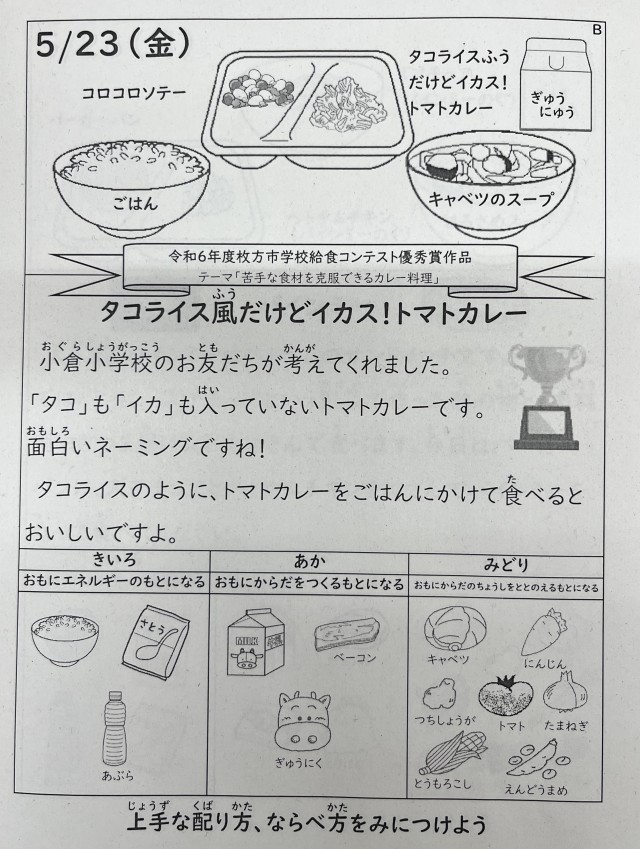 B
5/23(金)
コロコロソテー
タコライスふう
だけどイカス!
トマトカレー
ぎゅう
にゅう
ごはん
キャベツのスープ
令和6年度枚方市学校給食コンテスト優秀賞作品
テーマ「苦手な食材を克服できるカレー料理」
ふう
タコライス風だけどイカス!トマトカレー
おぐらしょうがっこう とも かんが
小倉小学校のお友だちが考えてくれました。
はい
「タコ」も「イカ」も入っていないトマトカレーです。
おもしろ
面白いネーミングですね!
た
タコライスのように、トマトカレーをごはんにかけて食べると
おいしいですよ。
きいろ あか みどり
おもにエネルギーのもとになる おもにからだをつくるもとになる おもにからだのちょうしをととのえるもとになる
さとう
MILK
ベーコン
キャベツ
にんじん
つちしょうが
トマト
たまねぎ
ぎゅうにく
あぶら
とうもろこし
えんどうまめ
じょうず くば かた かた
上手な配り方、ならべ方をみにつけよう